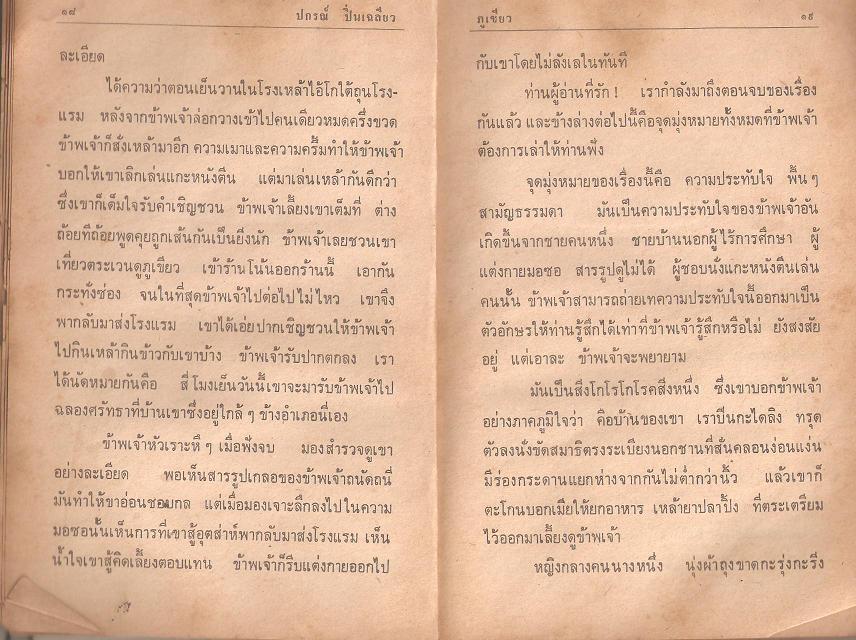 ๑๘
ปกรณ์ ปิ่นเฉลียว
ละเอียด
ได้ความว่าตอนเย็นวานในโรงเหล้าไอ้โกใต้ถุนโรง-
แรม หลังจากข้าพเจ้าล่อกวางเข้าไปคนเดียวหมดครึ่งขวด
ข้าพเจ้าก็สั่งเหล้ามาอีก ความเมาและความครึ้มทำให้ข้าพเจ้า
บอกให้เขาเลิกเล่นแกะหนังตีน แต่มาเล่นเหล้ากันดีกว่า
ซึ่งเขาก็เต็มใจรับคำเชิญชวน ข้าพเจ้าเลี้ยงเขาเต็มที่ ต่าง
ถ้อยทีถ้อยพูดคุยถูกเส้นกันเป็นยิ่งนัก ข้าพเจ้าเลยชวนเขา
เที่ยวตระเวนดูภูเขียว เข้าร้านโน้นออกร้านนี้ เอากัน
กระทั่งซ่อง จนในที่สุดข้าพเจ้าไปต่อไปไม่ไหว เขาจึง
พากลับมาส่งโรงแรม เขาได้เอ่ยปากเชิญชวนให้ข้าพเจ้า
ไปกินเหล้ากินข้าวกับเขาบ้าง ข้าพเจ้ารับปากตกลง เรา
ได้นัดหมายกันคือ สี่โมงเย็นวันนี้เขาจะมารับข้าพเจ้าไป
ฉลองศรัทธาที่บ้านเขาซึ่งอยู่ใกล้ ๆ ข้างอำเภอนี่เอง
ข้าพเจ้าหัวเราะหึ ๆ เมื่อฟังจบ มองสำรวจดูเขา
อย่างละเอียด พอเห็นสารรูปเกลอของข้าพเจ้าถนัดถนี่
มันทำให้ขาอ่อนชอบกล แต่เมื่อมองเจาะลึกลงไปในความ
มอซอนั้นเห็นการที่เขาสู้อุตส่าห์พากลับมาส่งโรงแรม เห็น
น้ำใจเขาสู้คิดเลี้ยงตอบแทน ข้าพเจ้าก็รีบแต่งกายออกไป
ภูเขียว
๑๙
กับเขาโดยไม่ลังเลในทันที
ท่านผู้อ่านที่รัก ! เรากำลังมาถึงตอนจบของเรื่อง
กันแล้ว และข้างล่างต่อไปนี้คือจุดมุ่งหมายทั้งหมดที่ข้าพเจ้า
ต้องการเล่าให้ท่านฟัง
จุดมุ่งหมายของเรื่องนี้คือ ความประทับใจ พื้น ๆ
สามัญธรรมดา มันเป็นความประทับใจของข้าพเจ้าอัน
เกิดขึ้นจากชายคนหนึ่ง ชายบ้านนอกผู้ไร้การศึกษา ผู้
แต่งกายมอซอ สารรูปดูไม่ได้ ผู้ชอบนั่งแกะหนังตีนเล่น
คนนั้น ข้าพเจ้าสามารถถ่ายเทความประทับใจนี้ออกมาเป็น
ตัวอักษรให้ท่านรู้สึกได้เท่าที่ข้าพเจ้ารู้สึกหรือไม่ ยังสงสัย
อยู่ แต่เอาละ ข้าพเจ้าจะพยายาม
มันเป็นสิ่งโกโรโกโรคสิ่งหนึ่ง ซึ่งเขาบอกข้าพเจ้า
อย่างภาคภูมิใจว่า คือบ้านของเขา เราปีนกะไดลิง ทรุด
ตัวลงนั่งขัดสมาธิตรงระเบียงนอกชานที่สั่นคลอนง่อนแง่น
มีร่องกระดานแยกห่างจากกันไม่ต่ำกว่านิ้ว แล้วเขาก็
ตะโกนบอกเมียให้ยกอาหาร เหล้ายาปลาปิ้ง ที่ตระเตรียม
ไว้ออกมาเลี้ยงดูข้าพเจ้า
หญิงกลางคนนางหนึ่ง นุ่งผ้าถุงขาดกะรุ่งกะริ่ง